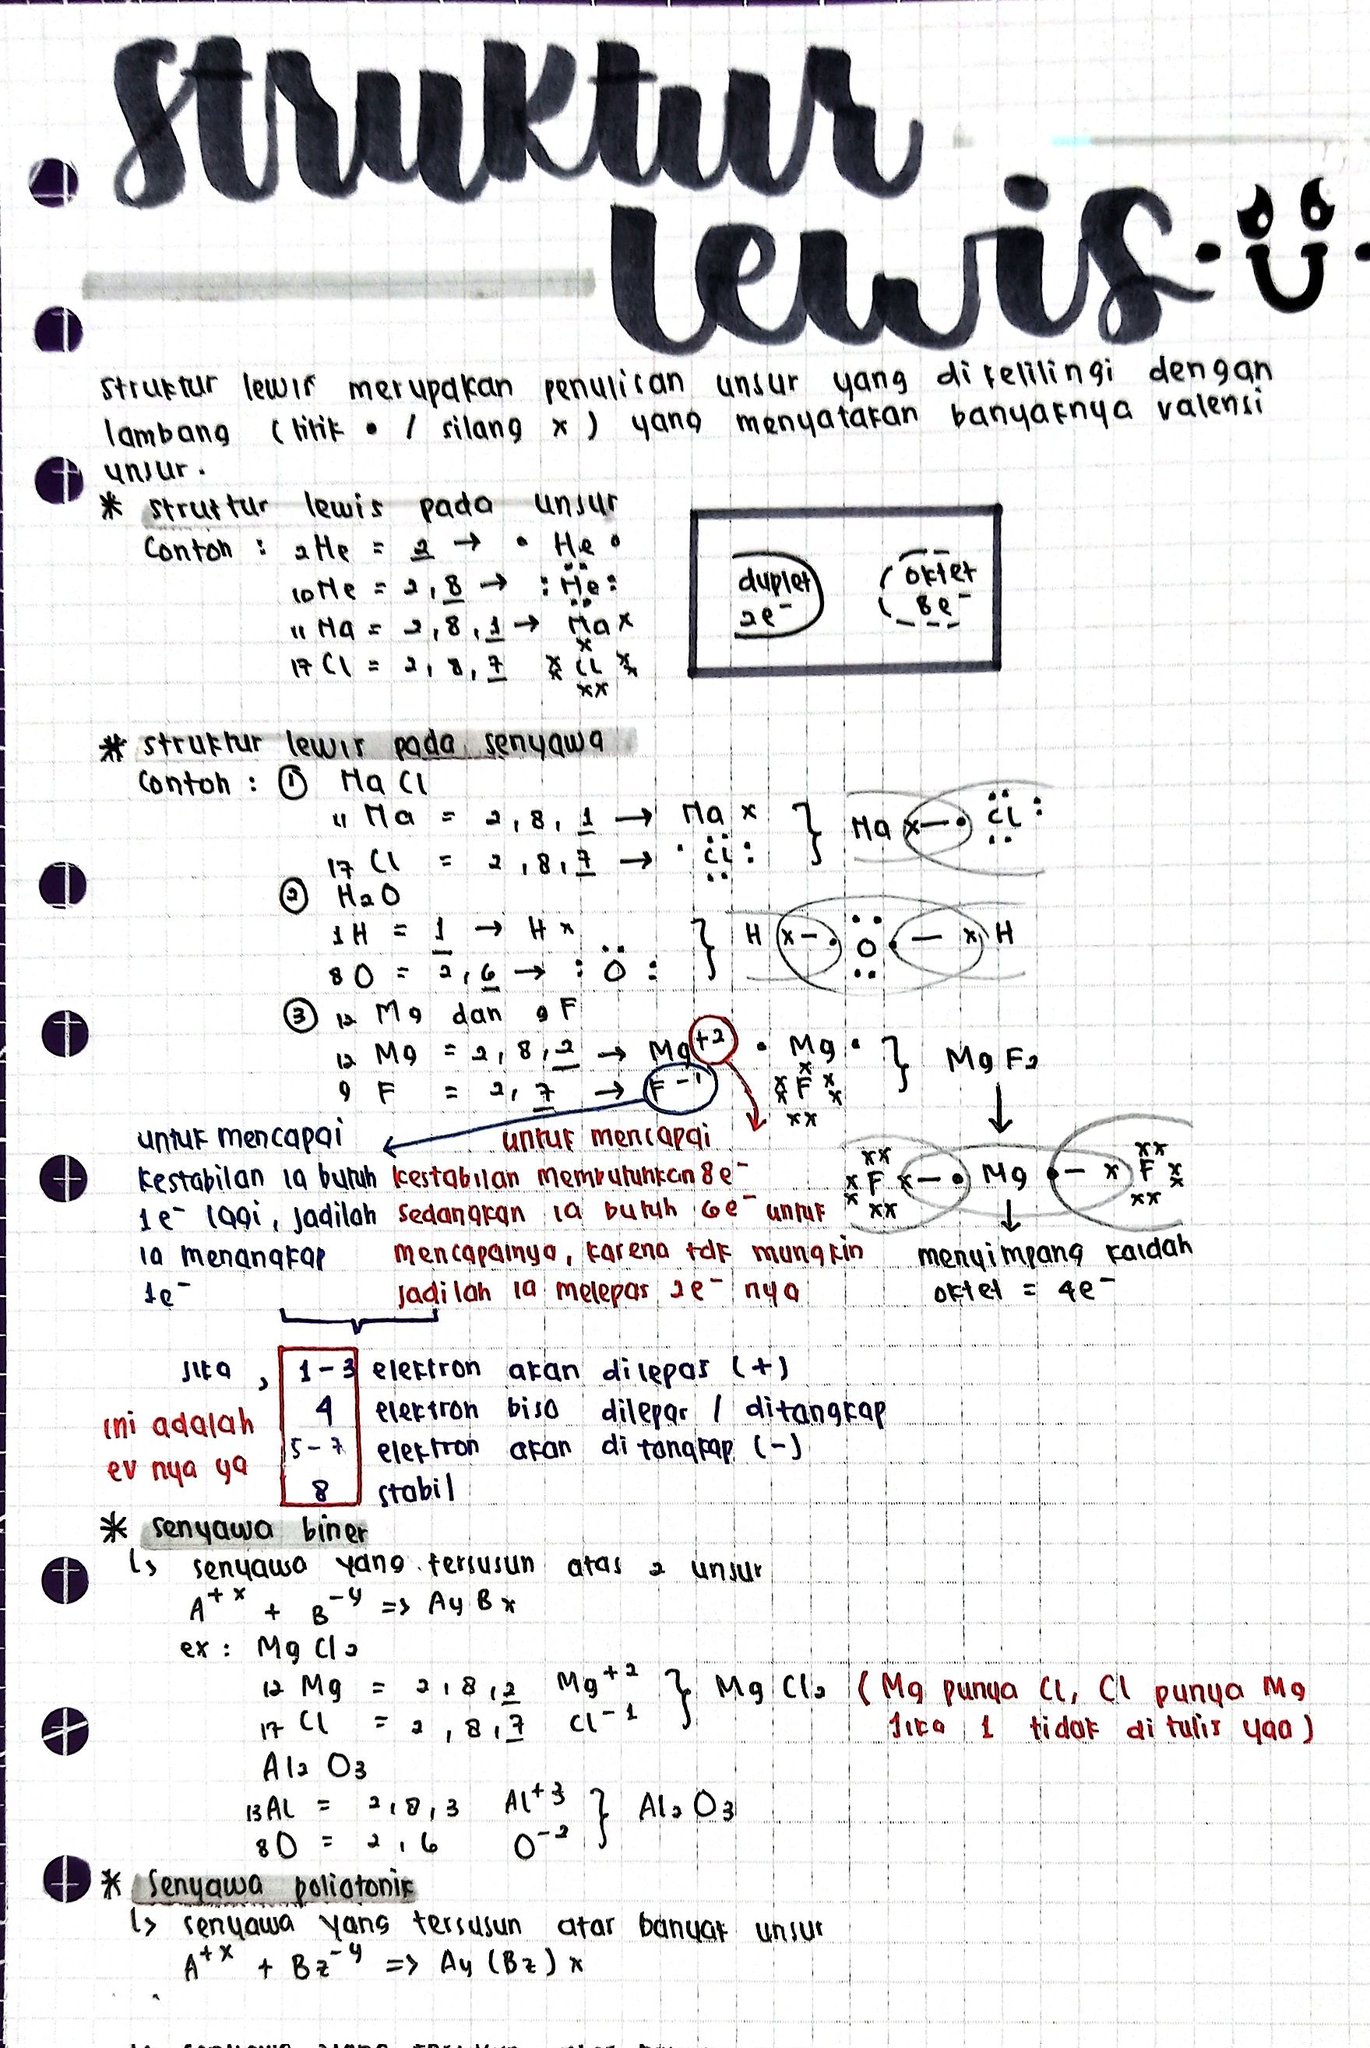 struktur
lewis
struktur lewis merupakan penulisan unsur yang dikelilingi dengan
lambang (titik • / silang x) yang menyatakan banyaknya valensi
unsur.
* struktur lewis pada unsur
Contoh : 2He = 2 → • He •
10Ne = 2,8 → :N̈ë:
11 Na = 2,8,1 → Na x
17 Cl = 2,8,7 xx Cl xx
x
xx
duplet
2e⁻
oktet
8e⁻
* struktur lewis pada senyawa
Contoh : ① NaCl
11 Na = 2,8,1 → Na x } Na x—• Cl :
17 Cl = 2,8,7 → • Cl :
② H2O
1H = 1 → H x } H x—• O •—x H
8O = 2,6 → : Ö :
③ 12 Mg dan 9 F
12 Mg = 2,8,2 → Mg⁺² • Mg • } MgF2
9 F = 2,7 → F⁻¹ xx F xx
x
xx
untuk mencapai
kestabilan ia butuh
1e⁻ lagi, jadilah
ia menangkap
1e⁻
untuk mencapai
kestabilan membutuhkan 8e⁻
sedangkan ia butuh 6e⁻ untuk
mencapainya, karena tdk mungkin
jadilah ia melepas 2e⁻ nya
xx F x—• Mg •—x F xx
menyimpang kaidah
oktet = 4e⁻
jika , 1-3 elektron akan dilepas (+)
4 elektron bisa dilepas / ditangkap
5-7 elektron akan ditangkap (-)
8 stabil
ini adalah
ev nya ya
* senyawa biner
↳ senyawa yang tersusun atas 2 unsur
A⁺ˣ + B⁻ʸ => AyBx
ex : MgCl2
12 Mg = 2,8,2 Mg⁺² } MgCl2 (Mg punya Cl, Cl punya Mg
17 Cl = 2,8,7 Cl⁻¹ jika 1 tidak ditulis yaa)
Al2O3
13Al = 2,8,3 Al⁺³ } Al2O3
8O = 2,6 O⁻²
* senyawa poliatonik
↳ senyawa yang tersusun atas banyak unsur
A⁺ˣ + Bz⁻ʸ => Ay(Bz)x